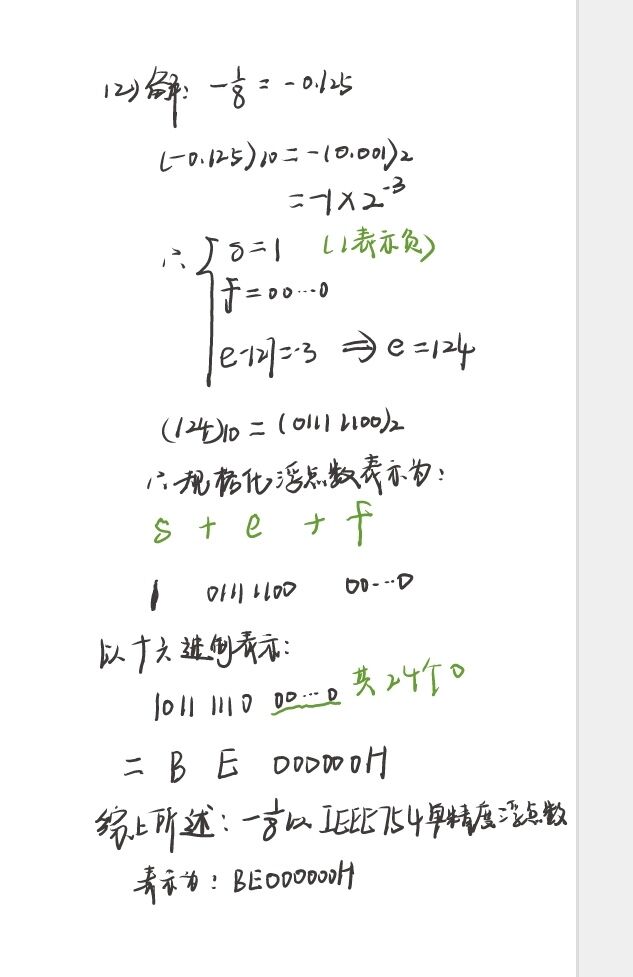 (2)解: -1/8 = -0.125
(-0.125)10 = -(0.001)2
= -1×2^-3
∴ { s=1 (1表示负)
f=00…0
e-127=-3 ⇒ e=124
(124)10 = (0111 1100)2
∴规格化浮点数表示为:
s + e + f
1 0111 1100 00…0
以十六进制表示:
1011 1110 00…0 共24个0
= B E 000000H
综上所述: -1/8以IEEE754单精度浮点数
表示为: BE000000H